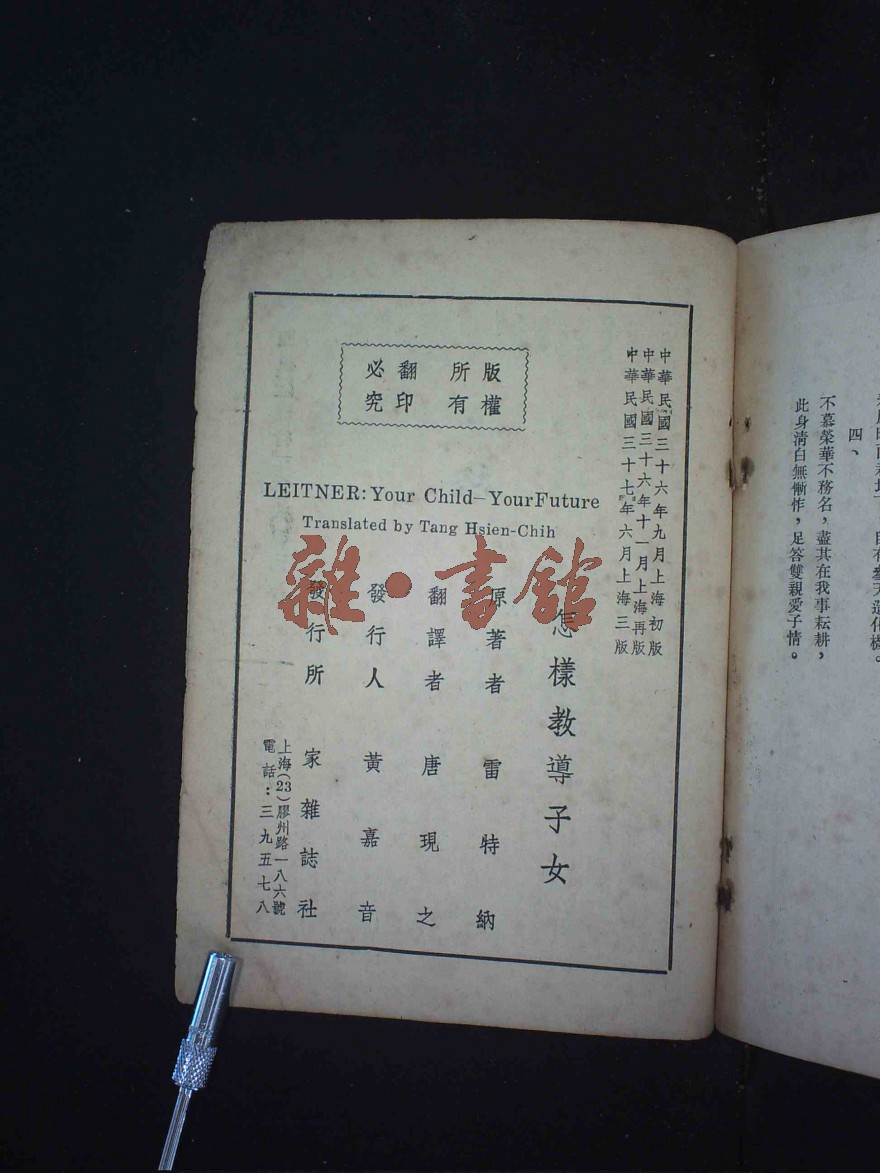 四、
不慕榮華不務名，盡其在我事耘耕，
此身清白無慚怍，足答雙親愛子情。
中華民國三十六年九月上海初版
中華民國三十六年十一月上海再版
中華民國三十七年六月上海三版
版權所有
翻印必究
LEITNER: Your Child—Your Future
Translated by Tang Hsien-Chih
怎樣教導子女
原著者 雷特納
翻譯者 唐現之
發行人 黃嘉音
發行所 家雜誌社
上海(23)膠州路一八六號
電話：三九五七八
雜·書館